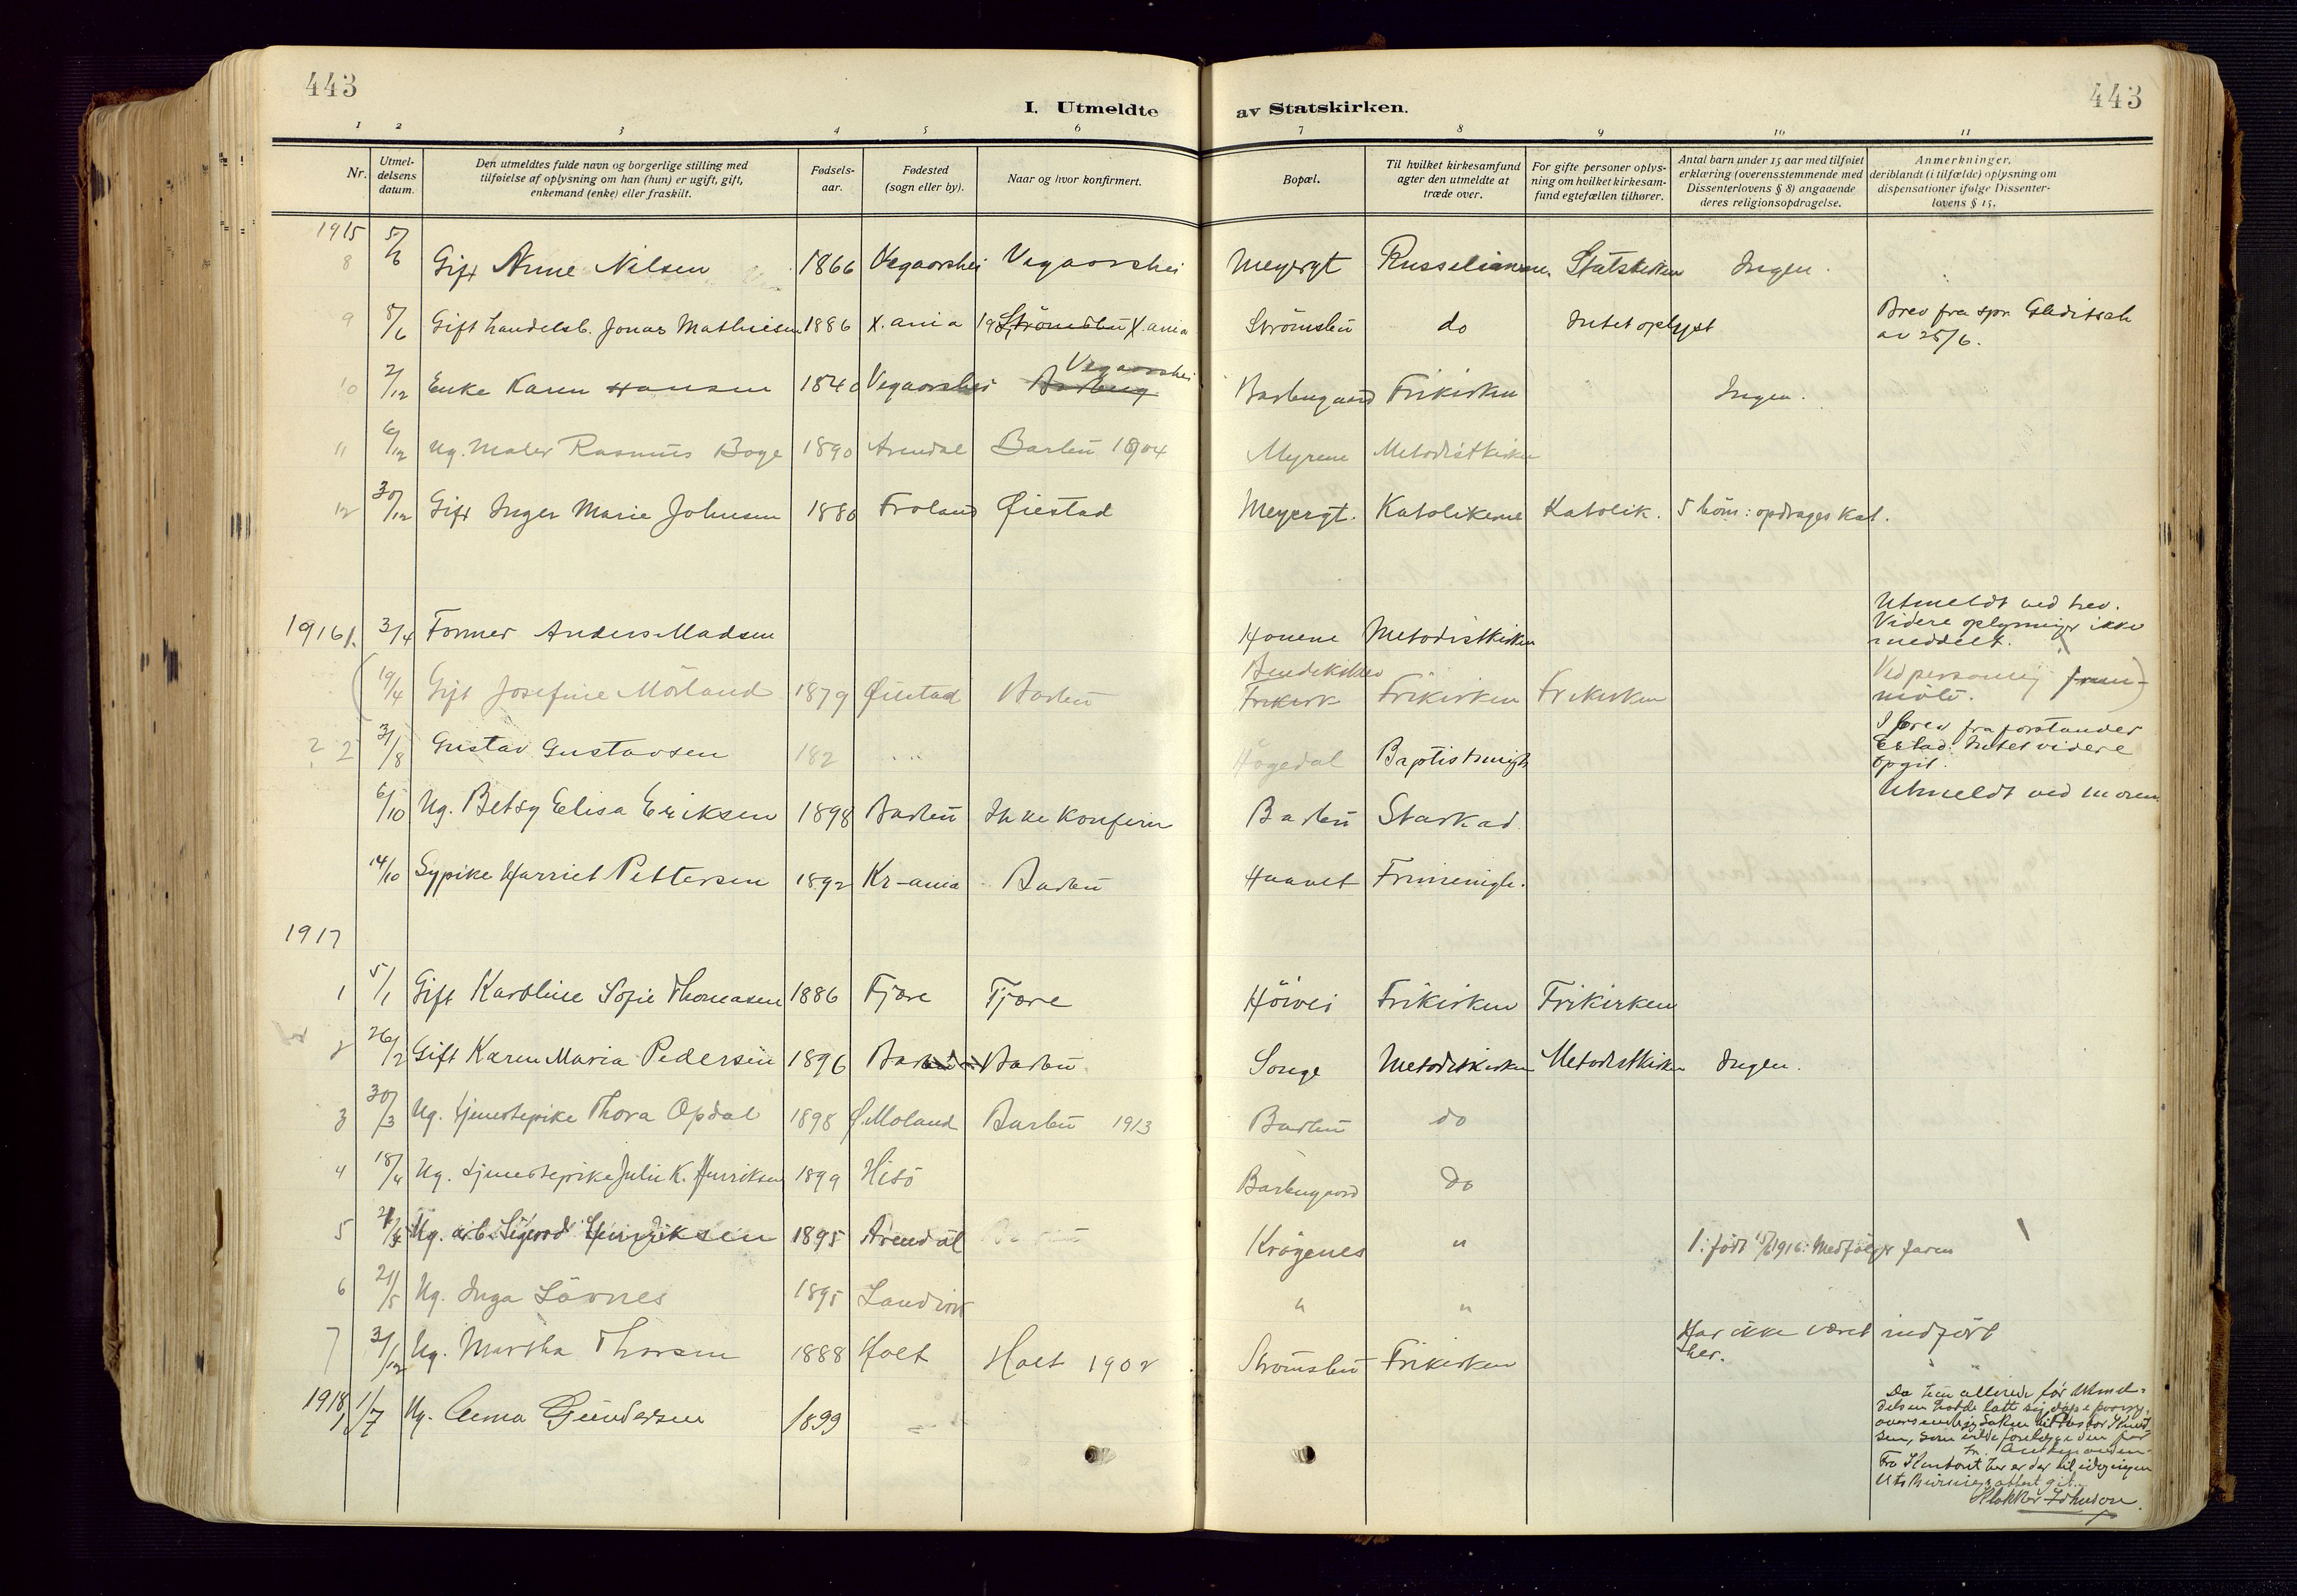 443
443
I. Utmeldte av Statskirken.
1 2 3 4 5 6 7 8 9 10 11
Nr.
Utmel-
delsens
datum.
Den utmeldtes fulde navn og borgerlige stilling med
tilføielse af oplysning om han (hun) er ugift, gift,
enkemand (enke) eller fraskilt.
Fødsels-
aar.
Fødested
(sogn eller by).
Naar og hvor konfirmert.
Bopæl.
Til hvilket kirkesamfund
agter den utmeldte at
træde over.
For gifte personer oplys-
ning om hvilket kirkesam-
fund egtefællen tilhører.
Antal barn under 15 aar med tilføiet
erklæring (overensstemmende med
Dissenterlovens § 8) angaaende
deres religionsopdragelse.
Anmerkninger,
deriblandt (i tilfælde) oplysning om
dispensationer ifølge Dissenter-
lovens § 15.
1915
8 5/6 Gift Anne Nilsen 1866 Vegaorshei Vegaorshei Meyergt Russelianerne. Statskirken Ingen.
9 8/6 Gift handelsb. Jonas Mathiesen 1886 X.ania Strömsbu X.ania Strömsbu do Intet oplyst Brev fra spr. Gleditsch
av 25/6.
10 2/12 Enke Karen Hansen 1840 Vegaorshei Vegaorshei Barbugaard Frikirken Ingen.
11 6/12 Ug. Maler Rasmus Boge 1890 Arendal Barbu 1904 Myrene Metodistkirken
12 30/12 Gift Inger Marie Johnsen 1880 Froland Øiestad Meyergt. Katolikerne Katolik. 5 börn: opdrages kat.
1916 1. 3/4 Former Anders Madsen Honene Metodistkirken Utmeldt ved brev.
Videre oplysninger ikke
meddelt.
19/4 Gift Josefine Mörland 1879 Øiestad Barbu Bendiksklev Frikirk Frikirken Frikirken Ved personlig frem-
möte.
2 31/8 Gustav Gustavsen 182 Högedal Baptistmigh I brev fra forstander
Eklad. Intet videre
opgit.
6/10 Ug. Betsy Elisa Eriksen 1898 Barbu Ikke konfirm Barbu Starkad Utmeldt ved moren
14/10 Sypike Harriet Pettersen 1892 Kr-ania Barbu Haavet Frimenigh.
1917
1 5/1 Gift Karoline Sofie Thomasen 1886 Fjære Fjære Höivei Frikirken Frikirken
2 26/2 Gift Karen Maria Pedersen 1896 Barbu Barbu Songe Metodistkirken Metodistkirken Ingen.
3 30/3 Ug. tjenestepike Thora Opdal 1898 Ø.Moland Barbu 1913 Barbu do
4 18/4 Ug. tjenestepike Julie K. Henriksen 1899 Hisö Barbugaard do
5 21/5 Ug. arb. Sigurd Henriksen 1895 Arendal Krögenes " 1: födt 15/6 1916: Medfölger faren
6 21/5 Ug. Inga Lövnes 1895 Landvik " "
7 31/12 Ug. Martha Thorsen 1888 Holt Holt 1902 Strömsbu Frikirken Har ikke været indfört
her.
1918
1 1/7 Ug. Anna Gundersen 1899 Da hun allerede för utmel-
delsen hadde latt sig döpe paany,
oversendtes saken til Pastor Knud-
sen, som vilde forelægge den for
Fra kontoret her er der til idag ingen
Utskrivningsattest git.
Klokker Johnson.